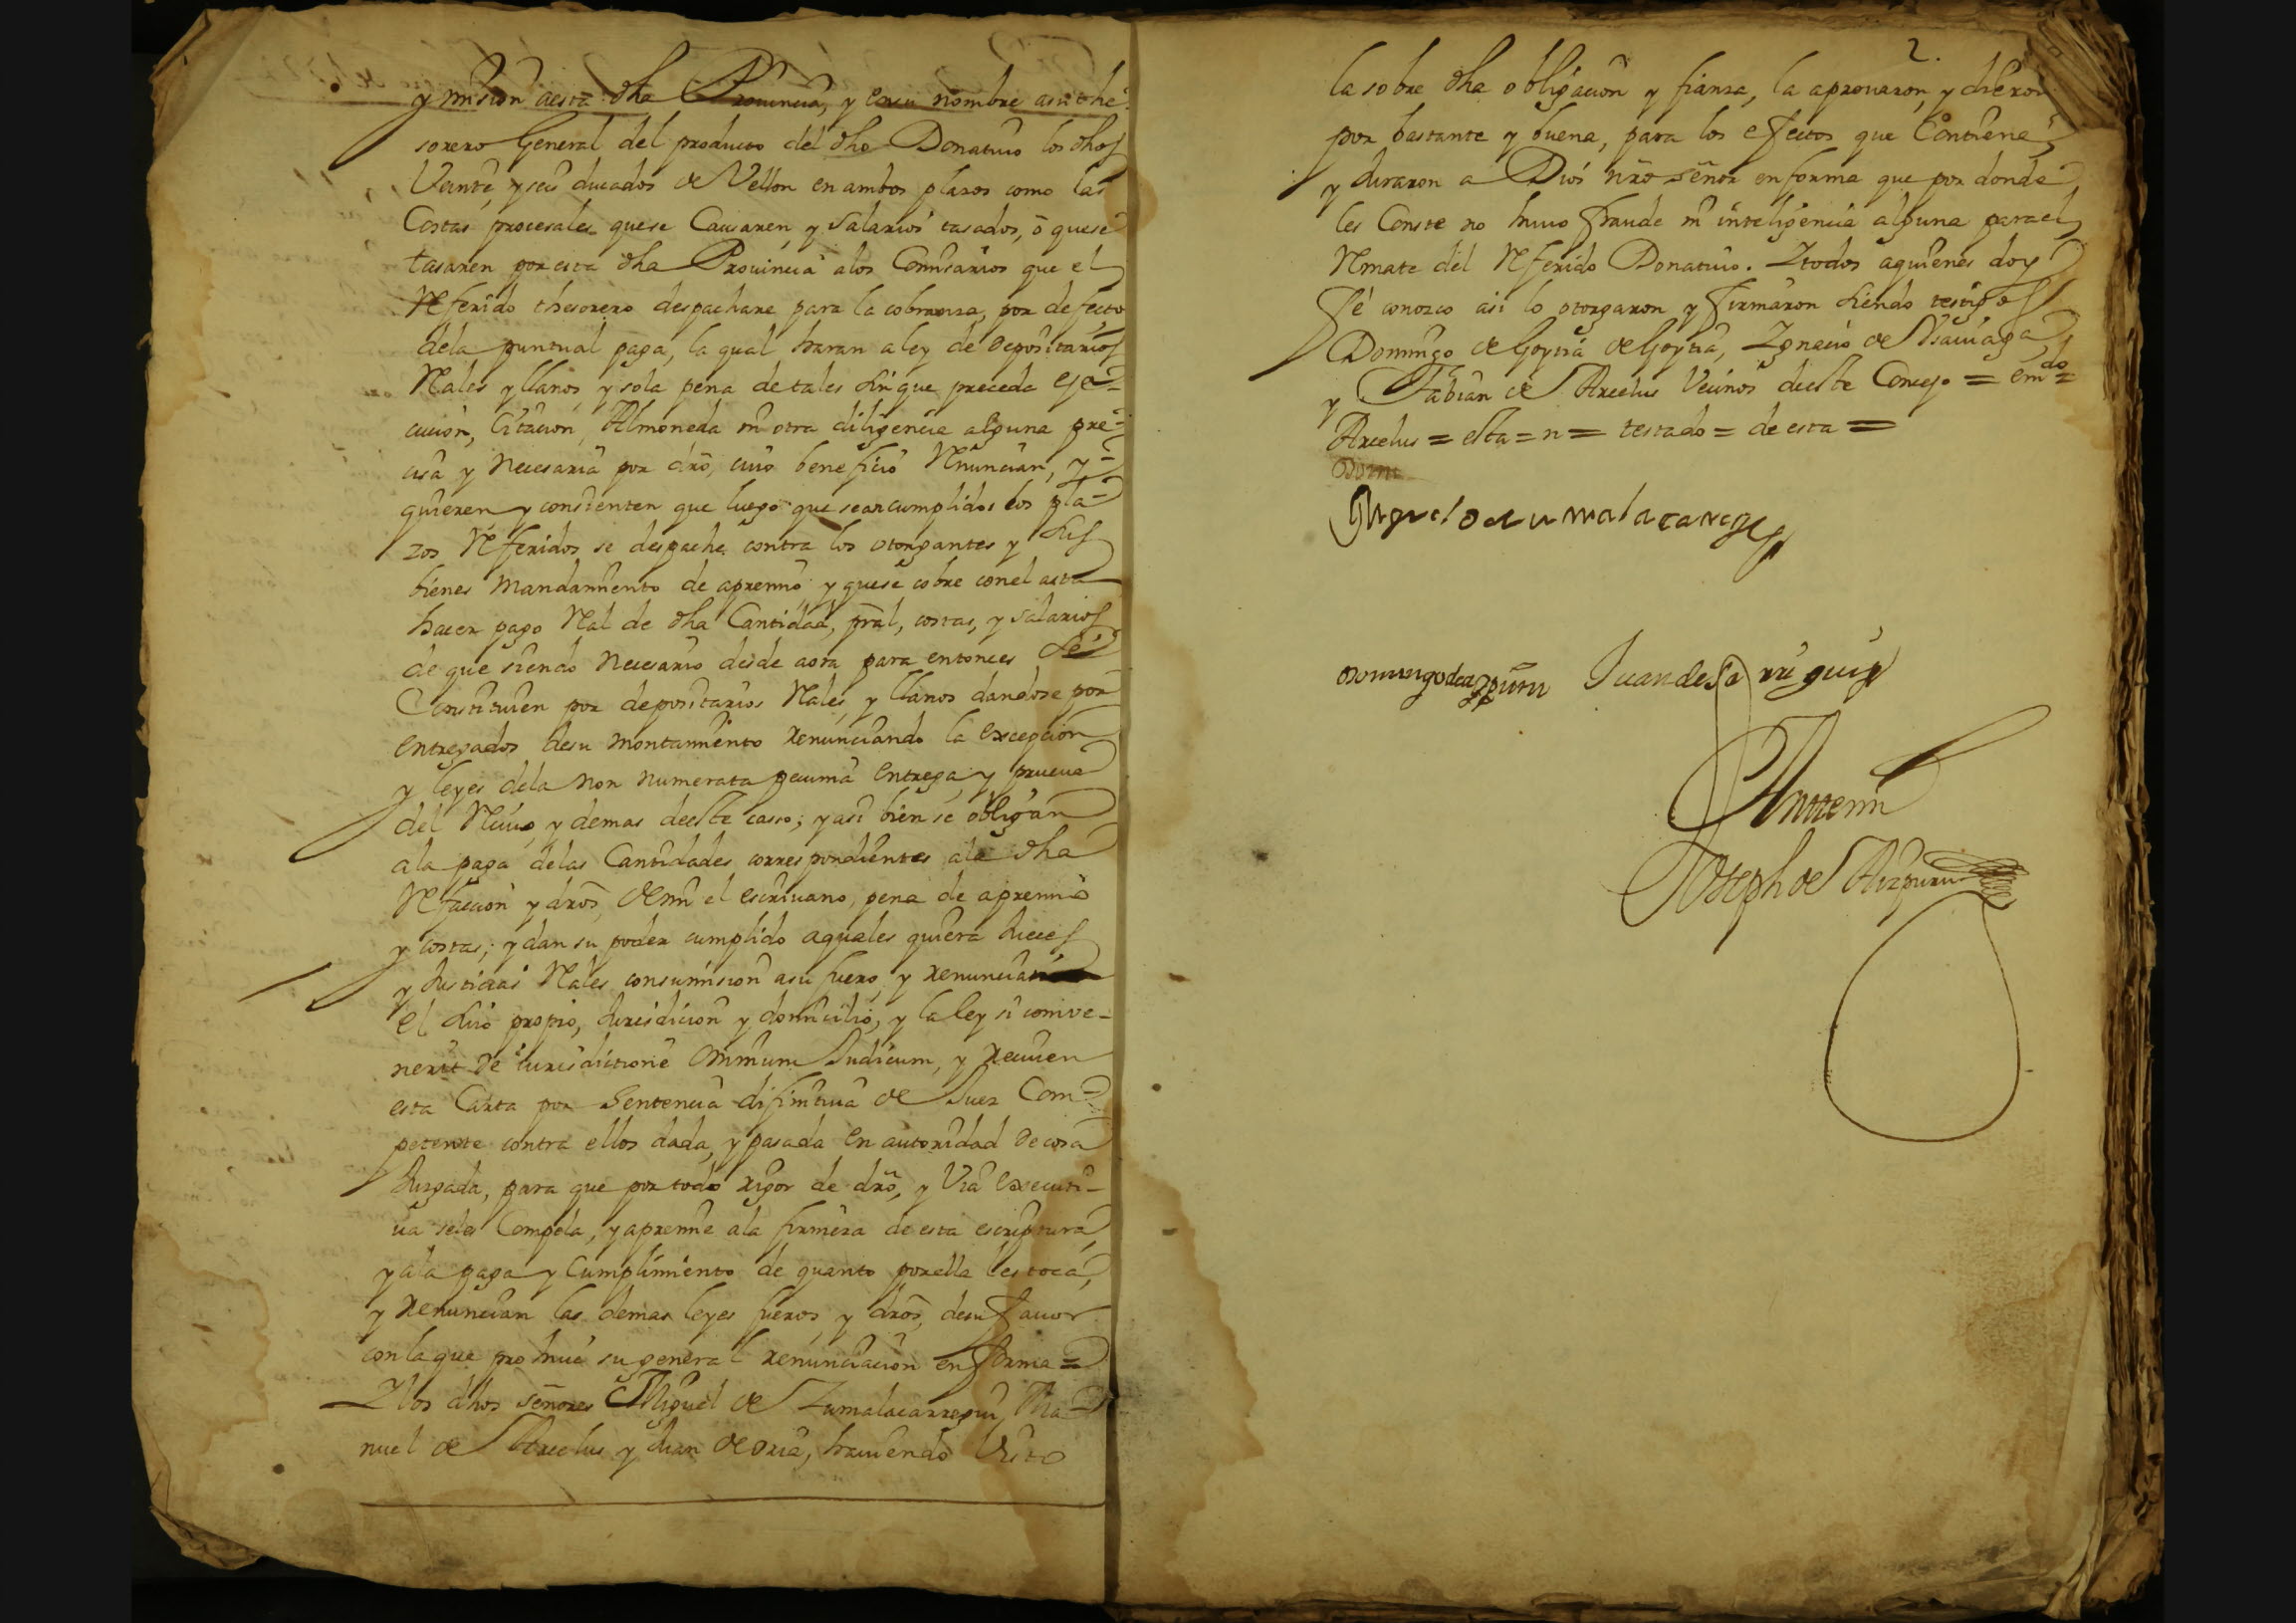 y mision aesta dha Prouincia, y en su nombre asu the-
sorero General del producto del dho Donatiuo los dhos
Veinte, y seis ducados de Vellon en ambos plazos como las
Costas procesales quese Causaren, y salarios tasados, ô quese
tasaren por esta dha Prouincia alos Comisarios que el
Referido thesorero despachare para la cobranza, por defecto
dela puntual paga, la qual haran a ley de depositarios
Rales y llanos, y sola pena de tales sin que preceda eje-
cucion, Citacion, Almoneda ni otra diligencia alguna pre-
cisa y necesaria por dro, cuio beneficio Renuncian, y
quieren y consienten que luego que sean cumplidos los pla-
zos Referidos se despache contra los otorgantes y sus
bienes mandamiento de apremio, y quese cobre con el asta
hacer pago Ral de dha Cantidad, pral, costas, y salarios
de que siendo necesario desde aora para entonces se
Constituien por depositarios Rales, y llanos dandose por
entregados desu montamiento renunciando la excepcion
y leyes dela non numerata pecunia entrega, y prueua
del Reciuo, y demas deeste casso; y asi bien se obligan
ala paga delas Cantidades correspondientes ala dha
Refaccion y dros, de mi el escriuano, pena de apremio
y costas; y dan su poder cumplido aquales quiera Jueces
y Justicias Rales consumision asu fuero, y renuncian
el suio propio, Jurisdicion y domicilio, y la ley si comve-
nerit de iurisdictione omnium Judicum, y reciuen
esta Carta por sentencia difinitiua de Juez Com-
petente contra ellos dada, y pasada en autoridad de cosa
Juzgada, para que por todo rigor de dro, y Via executi-
ua seles Compela, y apremie ala firmeza de esta escriptura,
y ala paga y Cumplimiento de quanto por ella les toca,
y renuncian las demas leyes fueros, y dros, desu fauor
con la que prohiue su general renunciacion en forma =
Y los dhos señores Miguel de Zumalacarregui, Ma-
nuel de Arcelus y Juan de oria, hauiendo Visto
2.
la sobre dha obligacion y fianza, la aprouaron, y dieron
por bastante y buena, para los efectos que Contiene,
y Juraron a Dios nro señor en forma que por donde
les Conste no huuo fraude ni inteligencia alguna para el
Rmate del Referido Donatiuo. Y todos aquienes doy
fé conozco asi lo otorgaron y firmaron siendo testigos
Domingo de Goytia de Goytia, Ygnacio de
y Fabian de Arcelus Vecinos deeste Concejo = emdo =
Arcelus = esta = n = testado = de esta =
Domi
Miguel de cumalacaregui
Domingo de azpuru Juan de Sarriguig
Antemi
Joseph de Aizpuru